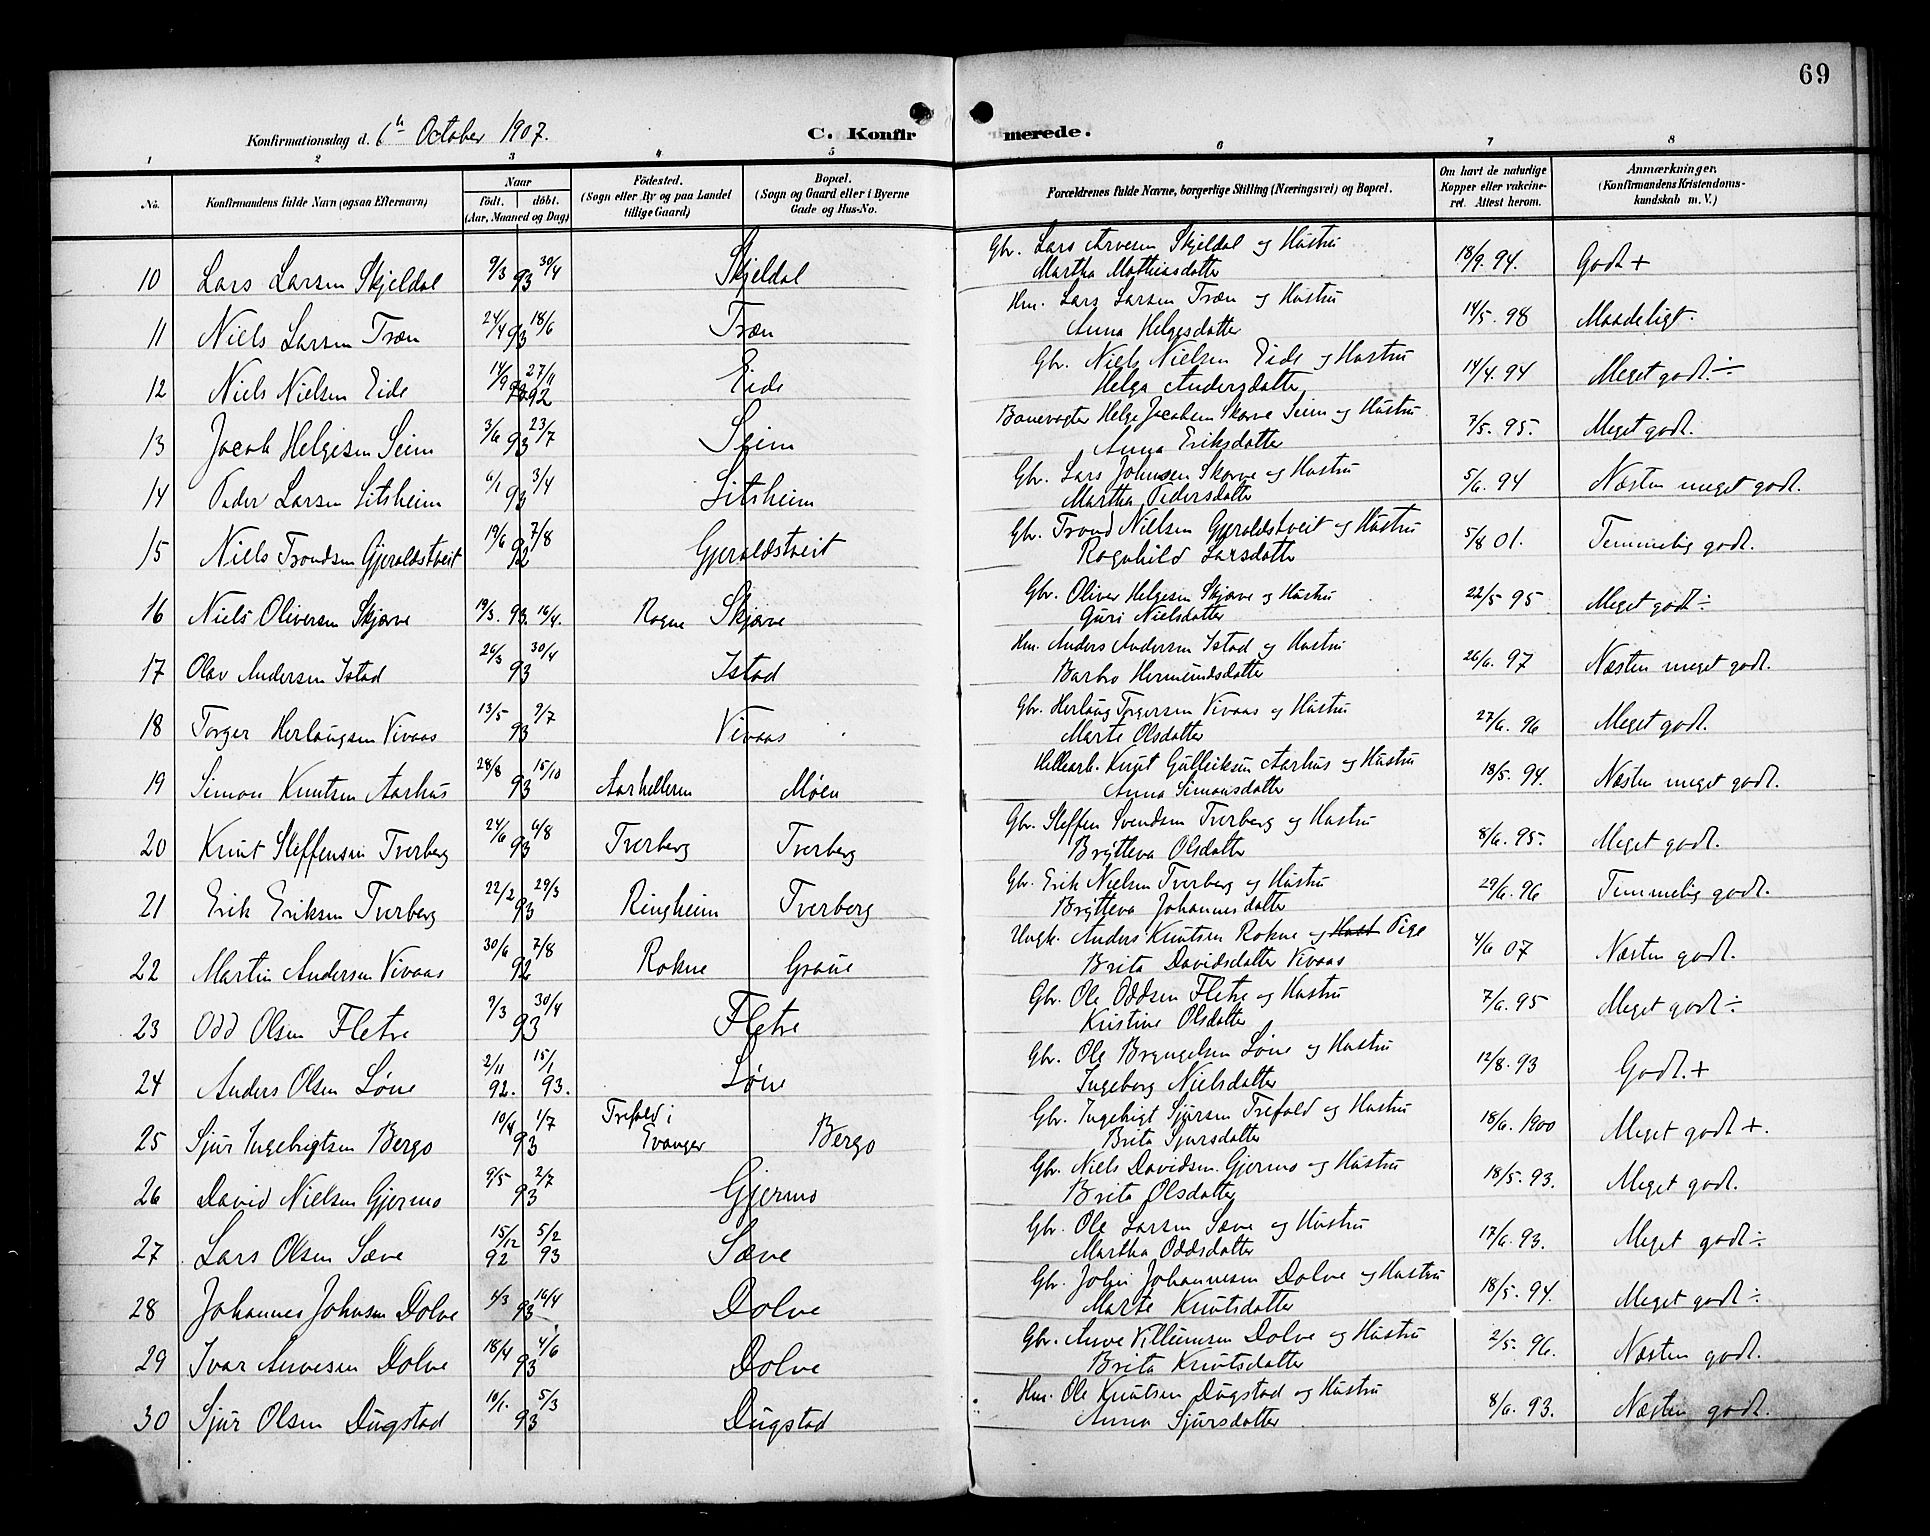 69
Konfirmationsdag d. 6te October 1907.
C. Konfirmerede.
1 2 3 4 5 6 7 8
No. Konfirmandens fulde Navn (ogsaa Efternavn) Naar født. døbt. (Aar, Maaned og Dag) Fødested. (Sogn eller By og paa Landet tillige Gaard) Bopæl. (Sogn og Gaard eller i Byerne Gade og Hus-No. Forældrenes fulde Navne, borgerlige Stilling (Næringsvei) og Bopæl. Om havt de naturlige Kopper eller vakcineret. Attest herom. Anmærkninger. (Konfirmandens Kristendomskundskab m. V.)
10 Lars Larsen Skjeldal 9/3 93 30/4 Skjeldal Gbr. Lars Arvesen Skjeldal og Hustru Martha Mathiasdatter 18/9. 94. Godt +
11 Niels Larsen Træn 24/4 93 18/6 Træn Hm. Lars Larsen Træn og Hustru Anna Helgesdatter 14/5. 98 Maadeligt.
12 Niels Nielsen Eide 14/9 92 27/11 92 Eide Gbr. Niels Nielsen Eide og Hustru Helga Andersdatter 14/4. 94 Meget godt ÷
13 Jacob Helgesen Seim 3/6 93 23/7 Seim Banevogter Helge Jacobsen Skjerve Seim og Hustru Anna Eriksdatter 7/5. 95. Meget godt.
14 Peder Larsen Litsheim 6/1 93 3/4 Litsheim Gbr. Lars Johnsen Skjerve og Hustru Martha Pedersdatter 5/6. 94 Næsten meget godt.
15 Niels Trondsen Gjeraldstveit 19/6 92 7/8 Gjeraldstveit Gbr. Trond Nielsen Gjeraldstveit og Hustru Ragnhild Larsdatter 5/8 01. Temmelig godt.
16 Niels Oliversen Skjerve 19/3. 93. 16/4. Rogne Skjerve Gbr. Oliver Helgesen Skjerve og Hustru Guri Nielsdatter 22/5 95 Meget godt ÷
17 Olav Andersen Istad 26/3 93 30/4 Istad Hm. Anders Andersen Istad og Hustru Barbro Hermundsdatter 26/6. 97 Næsten meget godt.
18 Torger Herlaugsen Vivaas 13/5 93 9/7 Vivaas Gbr. Herlaug Torgersen Vivaas og Hustru Marte Olsdatter 27/6. 96 Meget godt.
19 Simon Knutsen Aarhus 28/8 93 15/10 Aarhelleren Møen Hellearb. Knut Gulleiksen Aarhus og Hustru Anna Simonsdatter 18/5. 94. Næsten meget godt.
20 Knut Steffensen Tverberg 24/6 93 6/8 Tverberg Tverberg Gbr. Steffen Svendsen Tverberg og Hustru Brytteva Olsdatter 8/6. 95. Meget godt.
21 Erik Eriksen Tverberg 22/2 93 29/3 Ringheim Tverberg Gbr. Erik Nielsen Tverberg og Hustru Brytteva Johannesdatter 29/6. 96 Temmelig godt.
22 Martin Andersen Vivaas 30/6 92 7/8 Rokne Graue Ungk. Anders Knutsen Rokne og Hust Pige Brita Davidsdatter Vivaas 4/6 07 Næsten godt.
23 Odd Olsen Fletre 9/3 93 30/4 Fletre Gbr. Ole Oddsen Fletre og Hustru Kristine Olsdatter 7/6. 95 Meget godt ÷
24 Anders Olsen Løne 2/11 92. 15/1 93. Løne Gbr. Ole Brynjelsen Løne og Hustru Ingeborg Nielsdatter 12/8. 93 Godt. +
25 Sjur Ingebrigtsen Bergo 10/4 93 1/7 Trefald i Evanger Bergo Gbr. Ingebrigt Sjursen Trefald og Hustru Brita Sjursdatter 18/6. 1900 Meget godt +.
26 David Nielsen Gjerno 9/5 93 2/7 Gjerno Gbr. Niels Davidsen Gjerno og Hustru Brita Olsdatter 18/5. 93. Meget godt.
27 Lars Olsen Sæve 15/12 92 5/2 93 Sæve Gbr. Ole Larsen Sæve og Hustru Martha Oddsdatter 17/6. 93. Meget godt ÷
28 Johannes Johnsen Dolve 4/3 93 16/4 Dolve Gbr. John Johannesen Dolve og Hustru Marte Knutsdatter 18/5. 94. Meget godt ÷
29 Ivar Anvesen Dolve 18/4 93 4/6 Dolve Gbr. Anve Villumsen Dolve og Hustru Brita Knutsdatter 2/5. 96. Næsten godt.
30 Sjur Olsen Dugstad 10/1. 93 5/3 Dugstad Hm. Ole Knutsen Dugstad og Hustru Anna Sjursdatter 8/6. 93. Næsten godt.